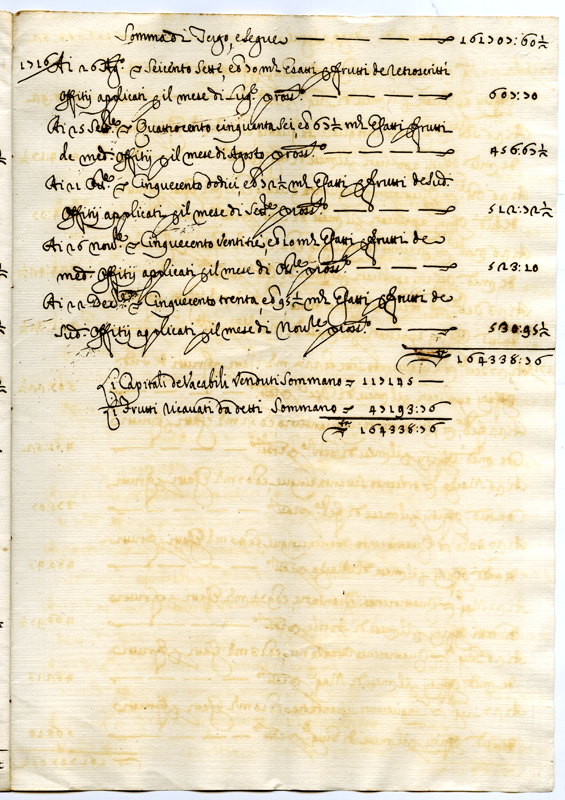 Somma di Tergo, e Segue — — — — 161707:60½
1716 Ai 26 Ag.º = Seicento Setti, e 70 m.ta Esatti p frutti de retroscritti
Offitij applicati p il mese di Lug.º — — — 607:70
Ai 5 Sett.re = Quattrocento cinquanta sei, e 63½ m.ta Esatti p frutti
de med.i Offitij p il mese di Agosto — — — 456.63½
Ai 1 Ott.re = Cinquecento dodici e 72½ m.ta Esatti p frutti de Sud.i
Offitij applicati p il mese di Sett.re — — — 512:72½
Ai 26 Nov.re = Cinquecento ventitre, e 10 m.ta Esatti p frutti de
med.i Offitij applicati p il mese di Ott.re — — 523:10
Ai 22 Dec.re = Cinquecento trenta, e 95½ m.ta Esatti p frutti de
Sud.i Offitij applicati p il mese di Nov.re — — 530:95½
164338:76
Li Capitali de Vacabili Venduti Sommano = 117145 —
Li Frutti Ricavati da detti Sommano = 47193:76
164338:76